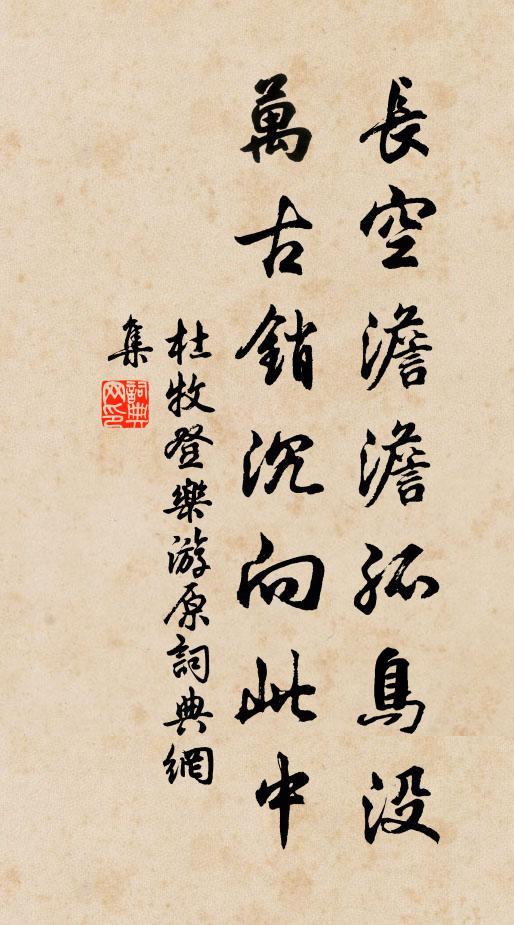 長空澹澹孤鳥没
萬古銷沉向此中
杜牧登樂游原詞典網
集
詞典网印